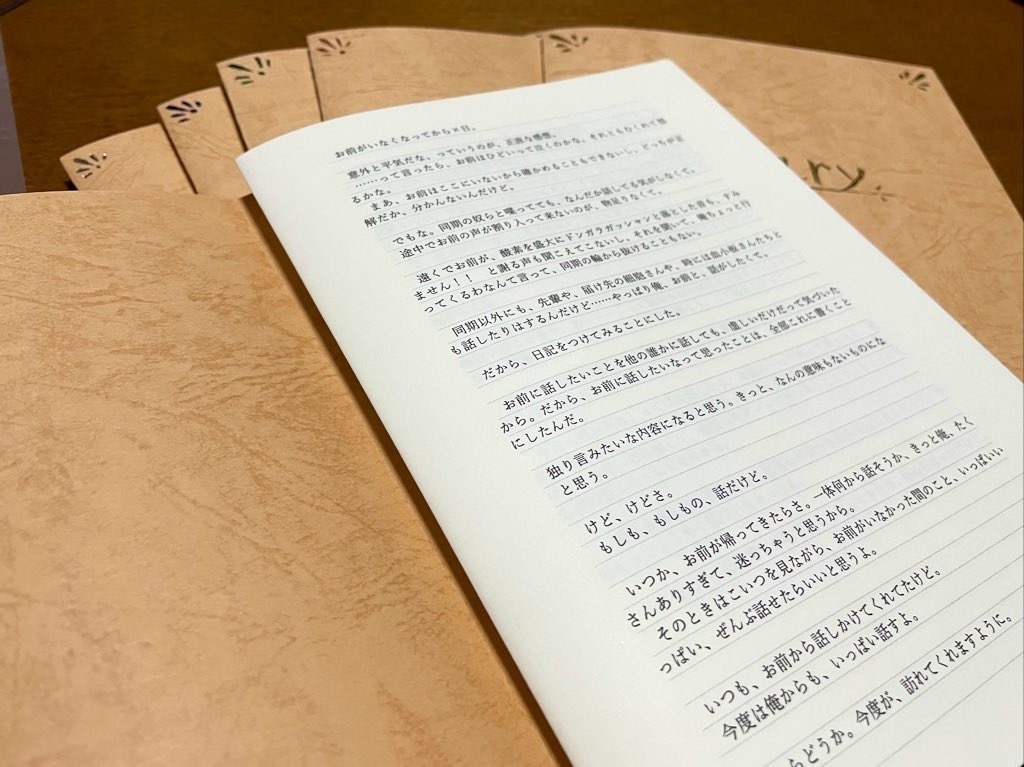 お前がいなくなってから×日。
意外と平気だな、っていうのが、正直な感想。
……って言ったら、お前はひどいって泣くのかな。それともむくれて怒
るかな。
まあ、お前はここにいないから確かめることもできないし、どっちが正
解だか、分かんないんだけど。
でもな。同期の奴らと喋ってても、なんだか話してる気がしなくて。
途中でお前の声が割り入って来ないのが、物足りなくて。
遠くでお前が、酸素を盛大にドンガラガッシャンと落とした音も、すみ
ません！！　と謝る声も聞こえてこないし、それを聞いて、俺ちょっと行
ってくるわなんて言って、同期の輪から抜けることもない。
同期以外にも、先輩や、届け先の細胞さんや、時には血小板さんたちと
も話したりはするんだけど……やっぱり俺、お前と、話がしたくて。
だから、日記をつけてみることにした。
お前に話したいことを他の誰かに話しても、虚しいだけだって気づいた
から。だから、お前に話したいなって思ったことは、全部これに書くこと
にしたんだ。
独り言みたいな内容になると思う。きっと、なんの意味もないものにな
と思う。
けど、けどさ。
もしも、もしもの、話だけど。
いつか、お前が帰ってきたらさ。一体何から話そうか、きっと俺、たく
さんありすぎて、迷っちゃうと思うから。
そのときはこいつを見ながら、お前がいなかった間のこと、いっぱいい
っぱい、ぜんぶ話せたらいいと思うよ。
いつも、お前から話しかけてくれてたけど。
今度は俺からも、いっぱい話すよ。
らどうか。今度が、訪れてくれますように。
ry